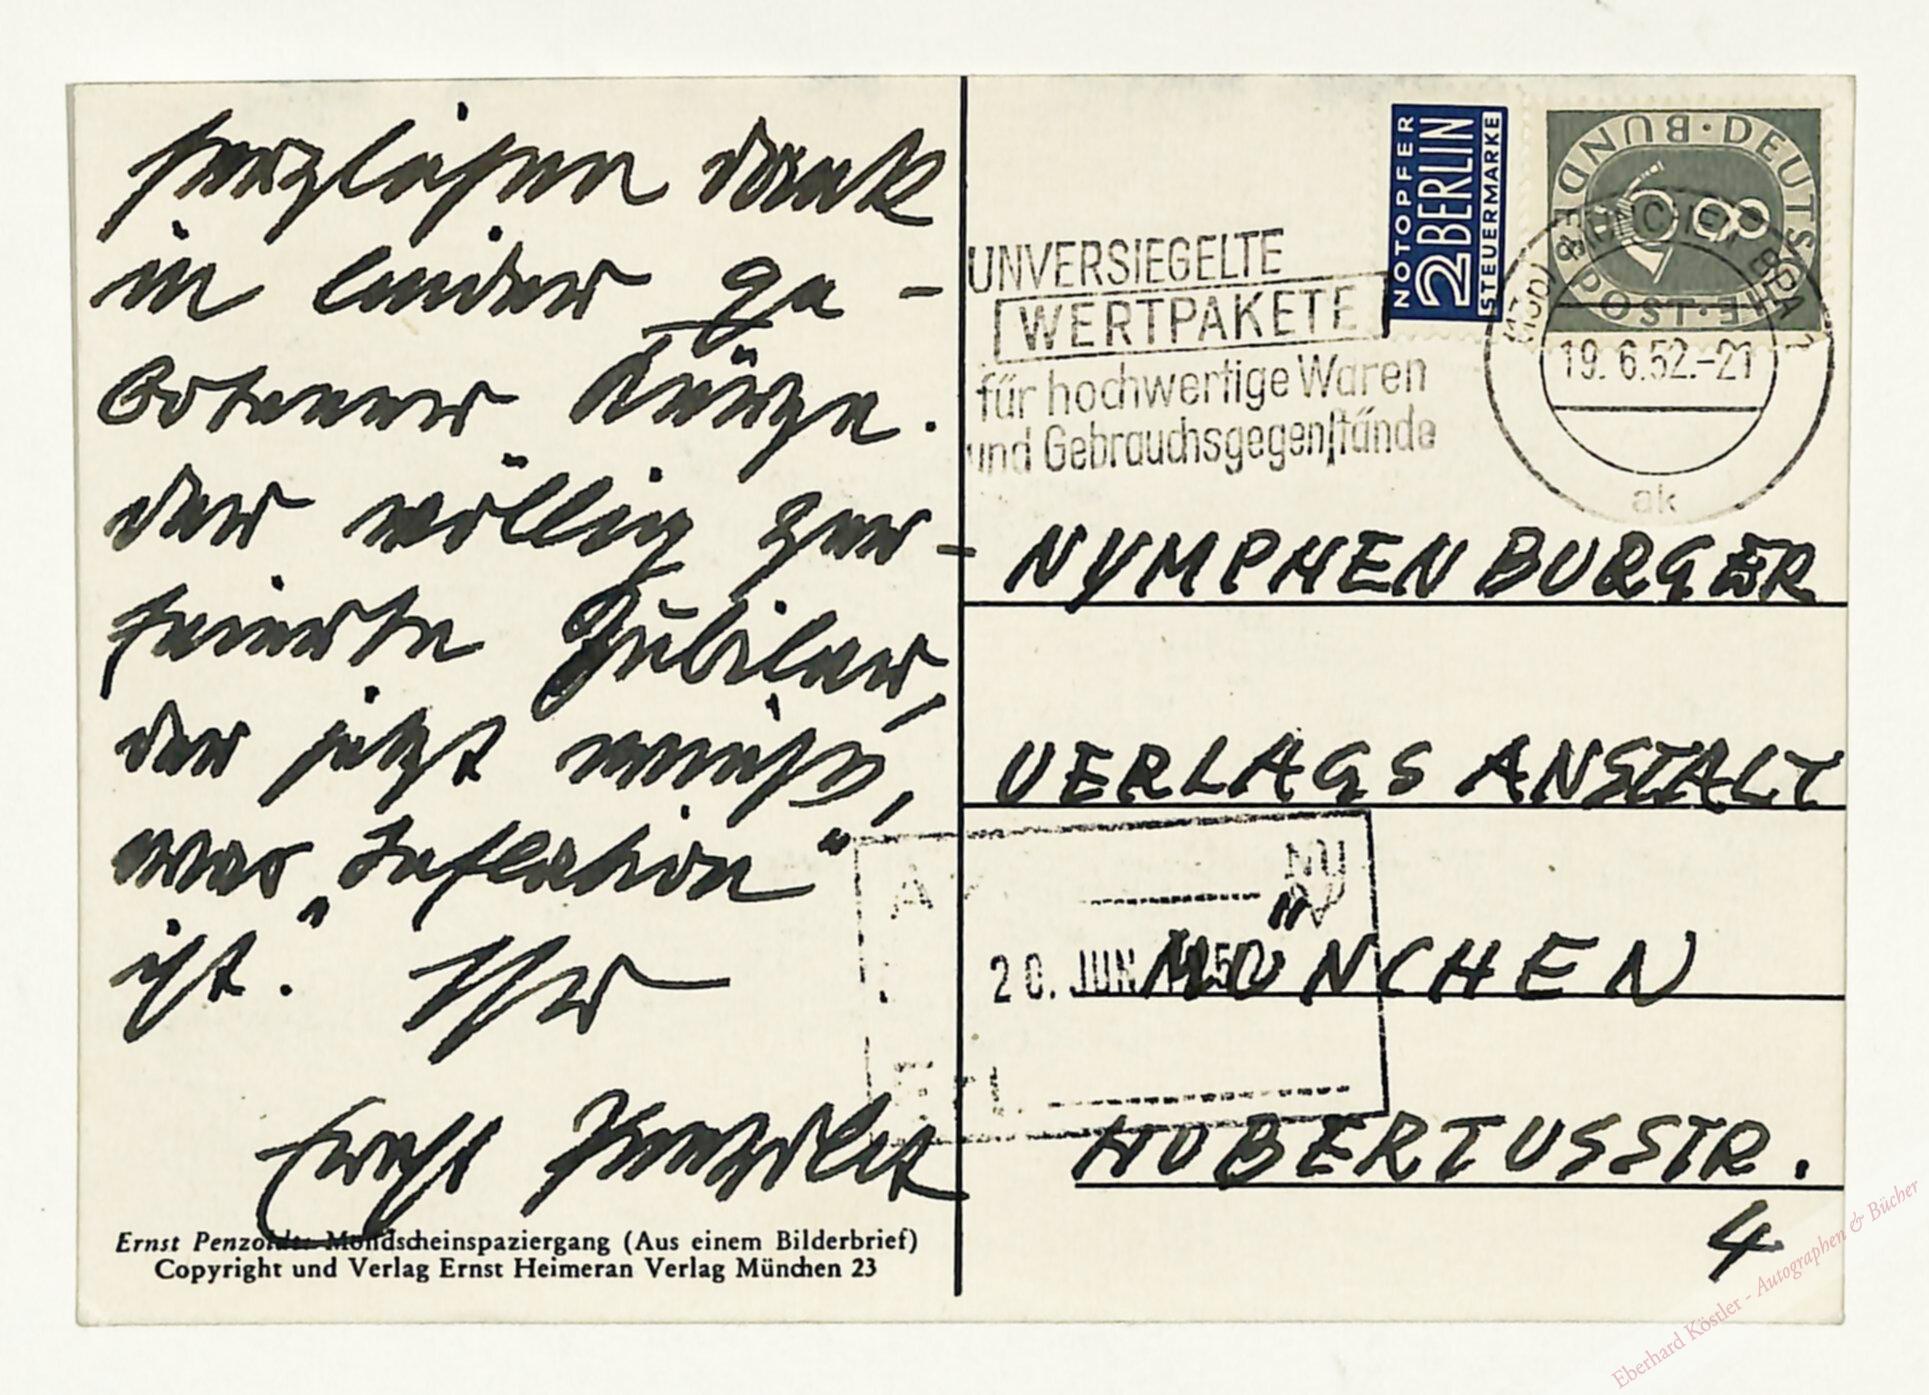 herzlichen Dank
in leider ge-
botener Kürze.
der völlig zer-
feierte Jubilar,
der jetzt weiß,
was „Inflation“
ist. Ihr
Ernst Penzoldt
Ernst Penzoldt: Mondscheinspaziergang (Aus einem Bilderbrief)
Copyright und Verlag Ernst Heimeran Verlag München 23
NOTOPFER
2 BERLIN
STEUERMARKE
DEUTSCHE BUNDESPOST
8
UNVERSIEGELTE
WERTPAKETE
für hochwertige Waren
und Gebrauchsgegenstände
MÜNCHEN BPA
19.6.52.-21
ak
NYMPHENBURGER
VERLAGSANSTALT
20. JUN. 1952
MÜNCHEN
HUBERTUSSTR.
4
Eberhard Köstler - Autographen & Bücher